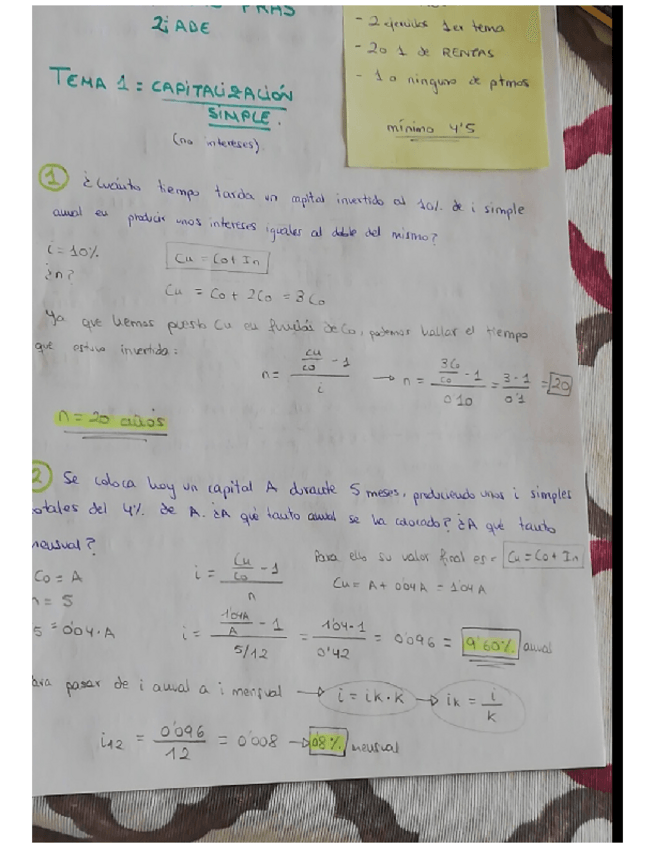 PRAS
2º ADE
- 2 ejercicios 1er tema
- 2 o 1 de RENTAS
- 1 o ninguno de ptmos
mínimo 4'5
TEMA 1 = CAPITALIZACIÓN
SIMPLE.
(no intereses)
1 ¿Cuánto tiempo tarda un capital invertido al 10% de i simple
anual en producir unos intereses iguales al doble del mismo?
i = 10%
¿n?
Cn = Co + In
Cn = Co + 2Co = 3Co
Ya que hemos puesto Cn en función de Co, podemos hallar el tiempo
que estuvo invertida:
n = (Cn/Co - 1) / i → n = (3Co/Co - 1) / 0'10 = (3 - 1) / 0'1 = 20
n = 20 años
2 Se coloca hoy un capital A durante 5 meses, produciendo unos i simples
otales del 4% de A. ¿A qué tanto anual se ha colocado? ¿A qué tanto
mensual?
Para ello su valor final es = Cn = Co + In
Co = A
i = (Cn/Co - 1) / n
Cn = A + 0'04A = 1'04A
n = 5
5 = 0'04·A
i = (1'04A/A - 1) / 5/12 = (1'04 - 1) / 0'42 = 0'096 = 9'60% anual
ara pasar de i anual a i mensual → i = ik · k → ik = i/k
i12 = 0'096 / 12 = 0'008 → 0'8% mensual